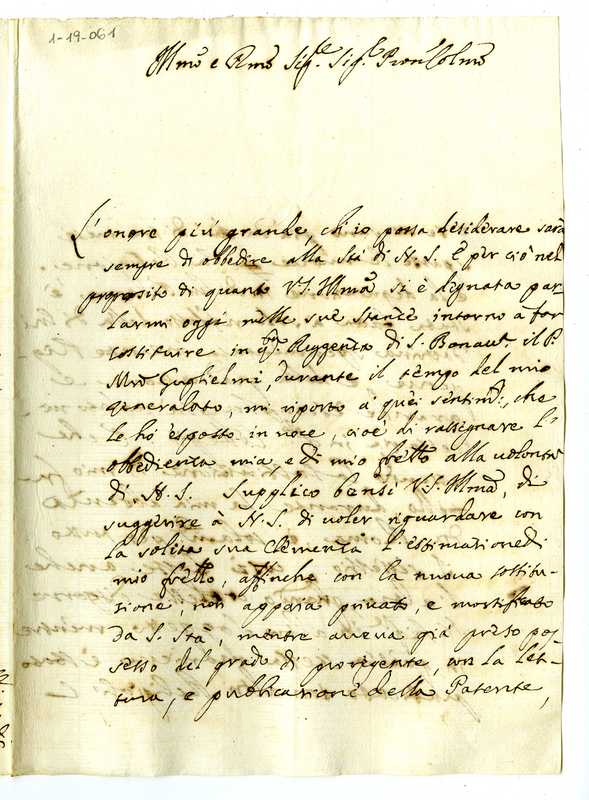 1-19-061
Illmo e Rmo Sigre. Sigre. Pron Colmo
L'onore più grande, ch'io possa desiderare sarà
sempre di obbedire alla Stà di N.S. E per ciò nel
proposito di quanto V.S. Illma si è degnata par-
larmi oggi nelle sue stanze intorno à far
costituire in qta. Reggenza di S. Bonavt. il P.
Mro Guglielmi, durante il tempo del mio
generalato, mi riporto a quei sentimti., che
le hò esposto in voce, cioè di rassegnare l'
obbedienza mia, e di mio frello alla volontà
di N.S. Supplico bensì V.S. Illma, di
suggerire à N.S. di voler riguardare con
la solita sua Clemenza l'estimazione di
mio frello, affinche con la nuova costitu-
zione, non appaia privato, e mortificato
da S. Stà, mentre aveva già preso pos-
sesso del grado di proregente, con la let-
tura, e publicazione della Patente,